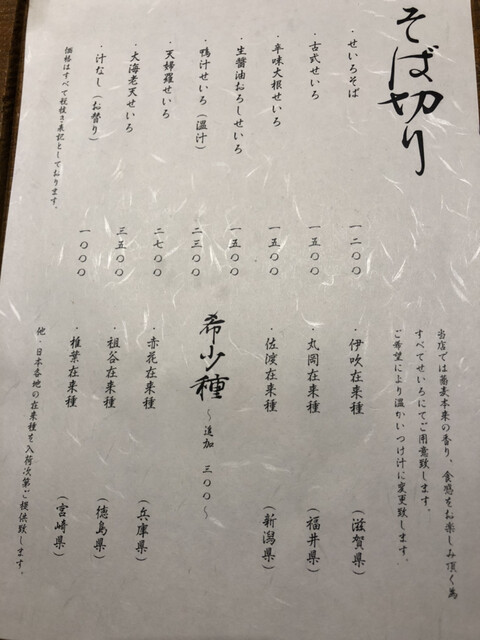 そば切り
・せいろそば 一二〇〇
・古式せいろ 一五〇〇
・辛味大根せいろ 一五〇〇
・生醬油おろしせいろ 一五〇〇
・鴨汁せいろ(温汁) 二三〇〇
・天婦羅せいろ 二七〇〇
・大海老天せいろ 三五〇〇
・汁なし(お替り) 一〇〇〇
価格はすべて税抜き表記としております。
当店では蕎麦本来の香り、食感をお楽しみ頂く為
すべてせいろにてご用意致します。
ご希望により温かいつけ汁に変更致します。
・伊吹在来種 (滋賀県)
・丸岡在来種 (福井県)
・佐渡在来種 (新潟県)
希少種 〜追加 三〇〇〜
・赤花在来種 (兵庫県)
・祖谷在来種 (徳島県)
・椎葉在来種 (宮崎県)
他・日本各地の在来種を入荷次第ご提供致します。